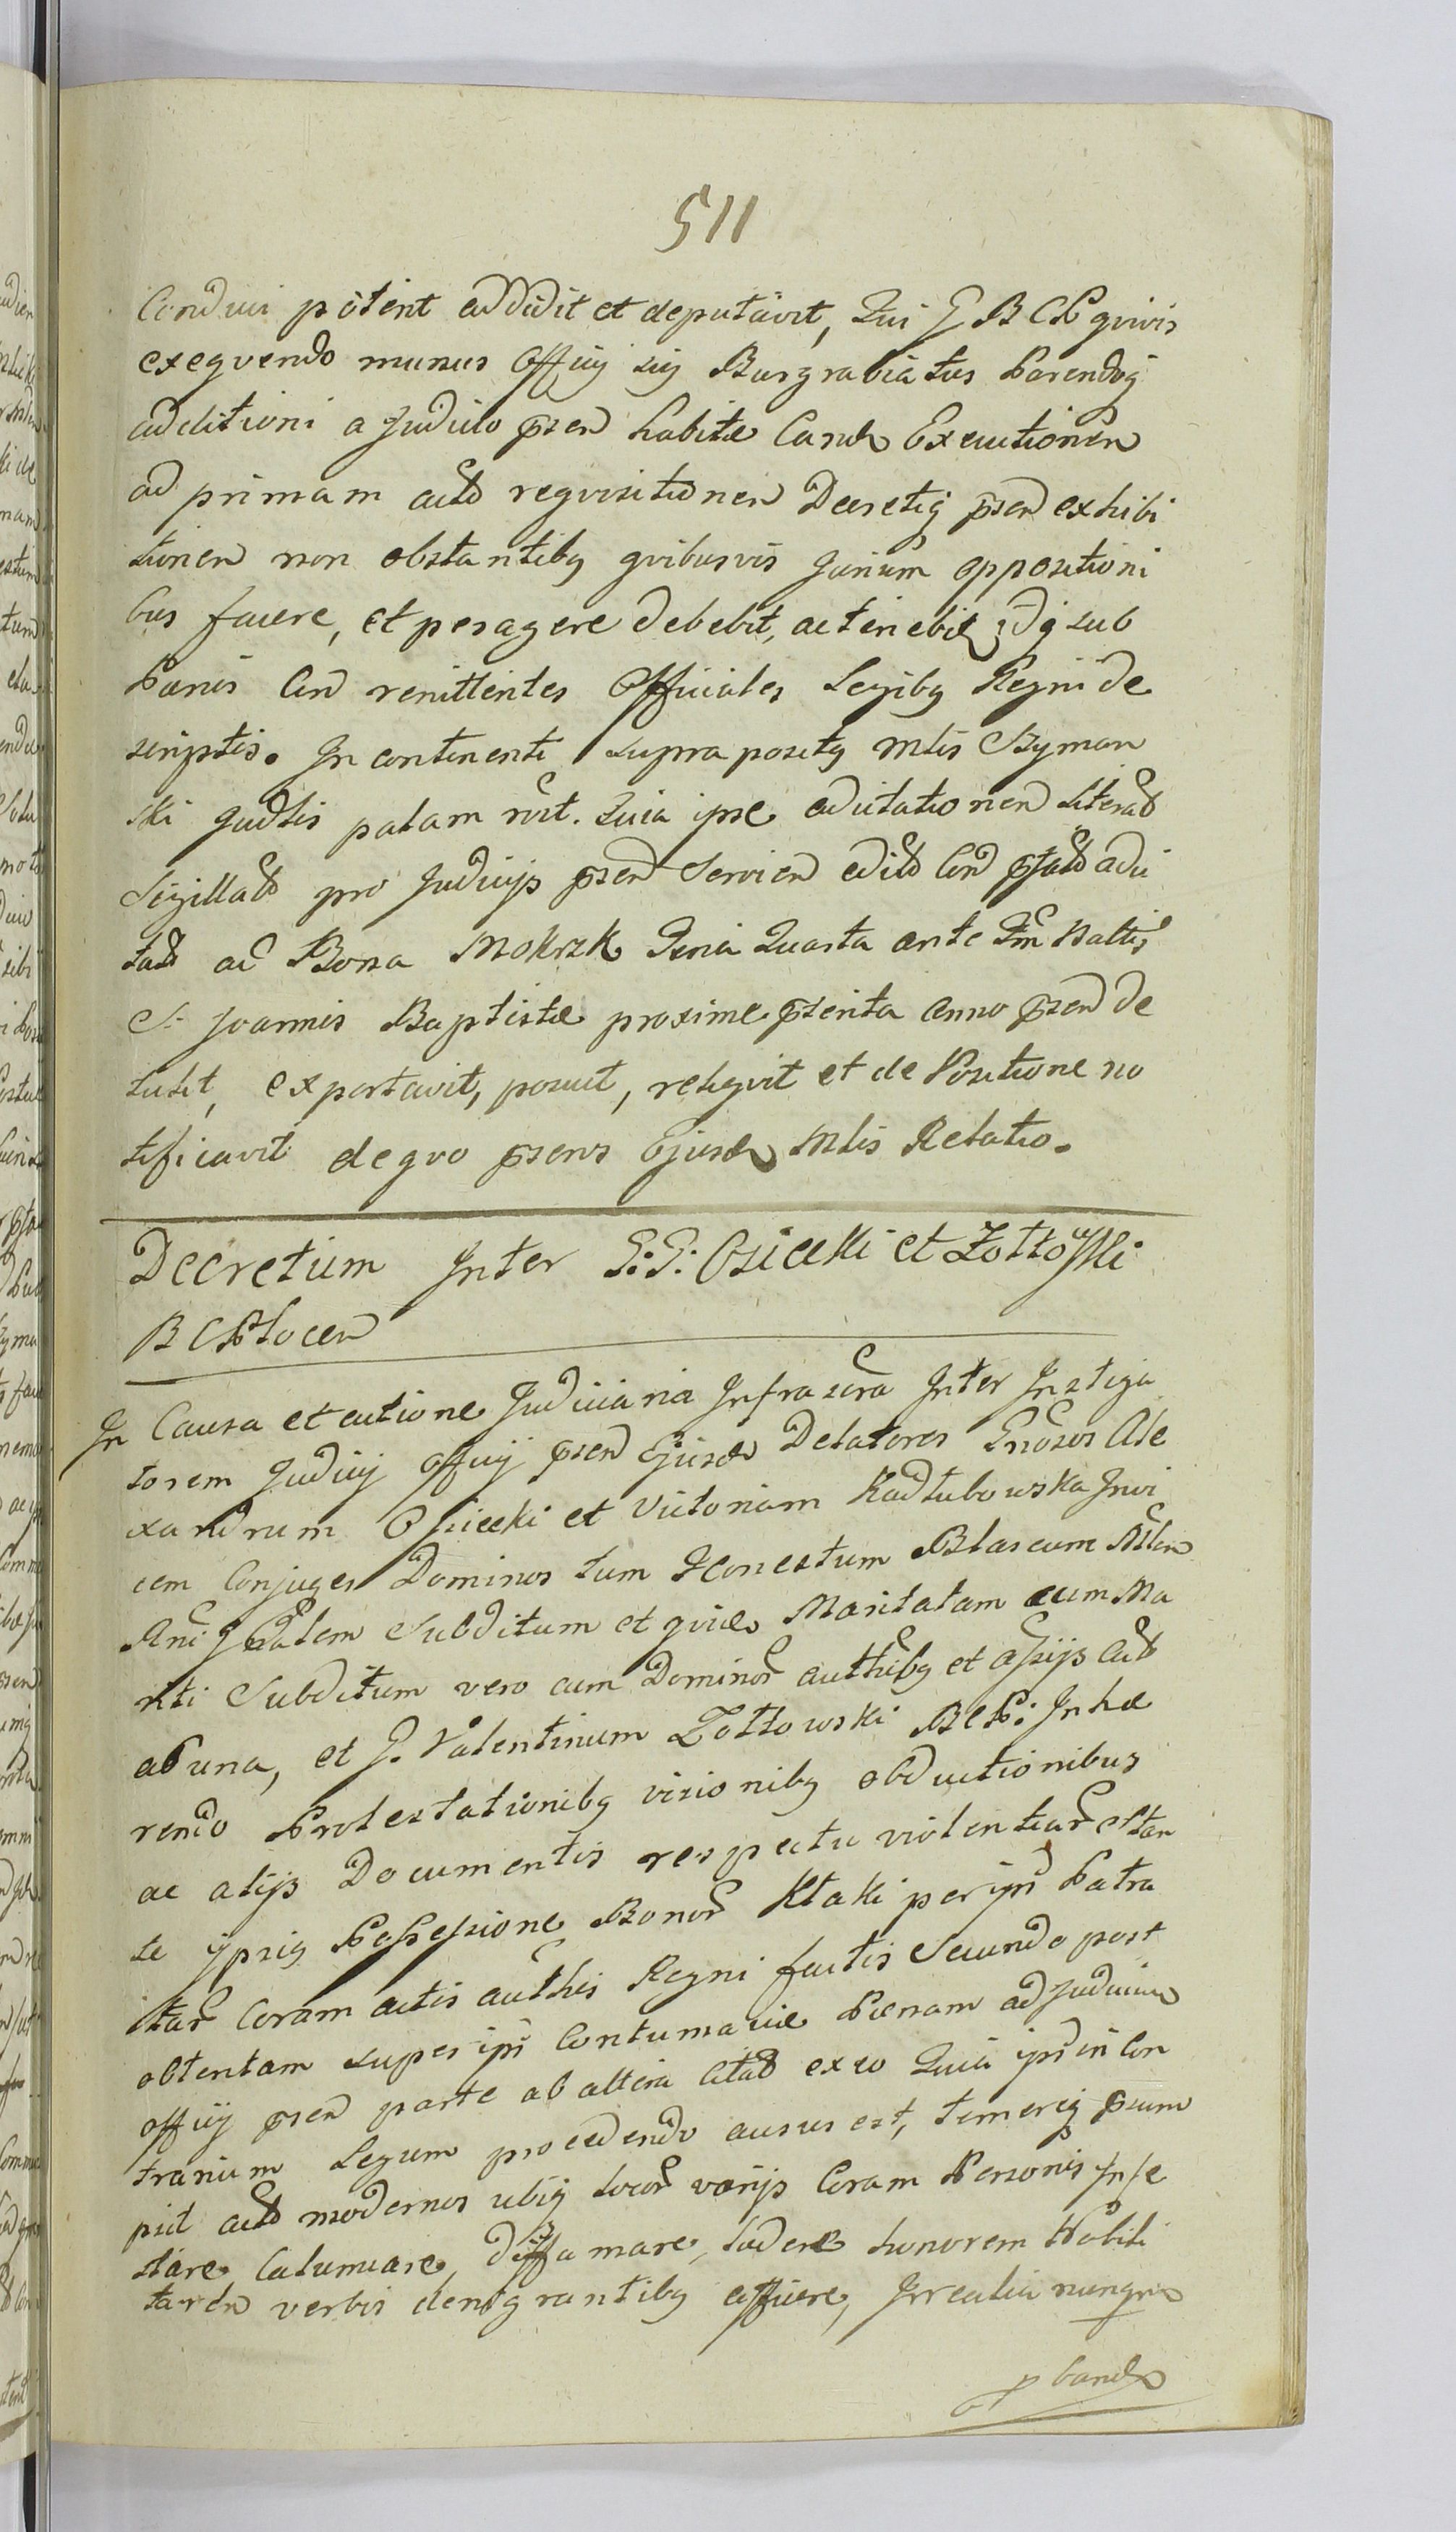 511
Conduci potent addidit et deputavit, Qui G BCP qvivis
exeqvendo munus Officij sui Burgrabiatus Parendoq
additioni a Judicio psen habitæ Eand Executionem
ad primam actor reqvisitionem Decretiq psen exhibi
tionem non obstantibq qvibusvis Jurium oppositioni
bus facere, et peragere debebit, ac tenebit idq sub
Pænis Con renittentes Officiales Legibq Regni de
scriptis. In continenti supra positq Mlis Szyman
ski Judtis palam rtt. Quia ipse adcitationem Literar
Sigillar pro Judicijs psen Servien edit Con pstat adci
tat ad Bona Mokrzk Feria Quarta ante Fm Natlis
S. Joannis Baptistæ proxime pterita Anno psen de
tulit, exportavit, posuit, reliqvit et de Positione no
tificavit de qvo psens Ejusd Mlis Relatio.
Decretum Inter G: G: Osiecki et Żołtowski
BCPlocen
In Causa et actione Judiciaria Infrascra Inter Instiga
torem Judicij Officij psen Ejusd Delatores Gnosos Ale
xandrum Osiecki et Victoriam Kadłubowska Invi
cem Conjuges Dominos tum Honestum Blascum
Subditum et qvid Maritatam cum Ma
riti Subditum vero cum Dominor authtibq et assijs Act
ab una, et G. Valentinum Żołtowski BCP: Inhæ
rendo Protestationibq visionibq obductionibus
ac alijs Documentis respectu violentiar stan
te ipsiq Possessione Bonor Ktaki per ipm Patra
tar Coram actis authis Regni factis Secundo post
obtentam super ipso Contumaciæ Pænam ad Judicium
officij psen parte ab altera Citat ex eo Quia ipse in Con
trarium Legum procedendo ausus est, temereq psum
psit act modernos ubiq locor varijs Coram Personis Infe
stare Calumniare, diffamare, lædere honorem Nobili
tarem verbis denigrantibq afficere, Irrealia nunqvam
pband